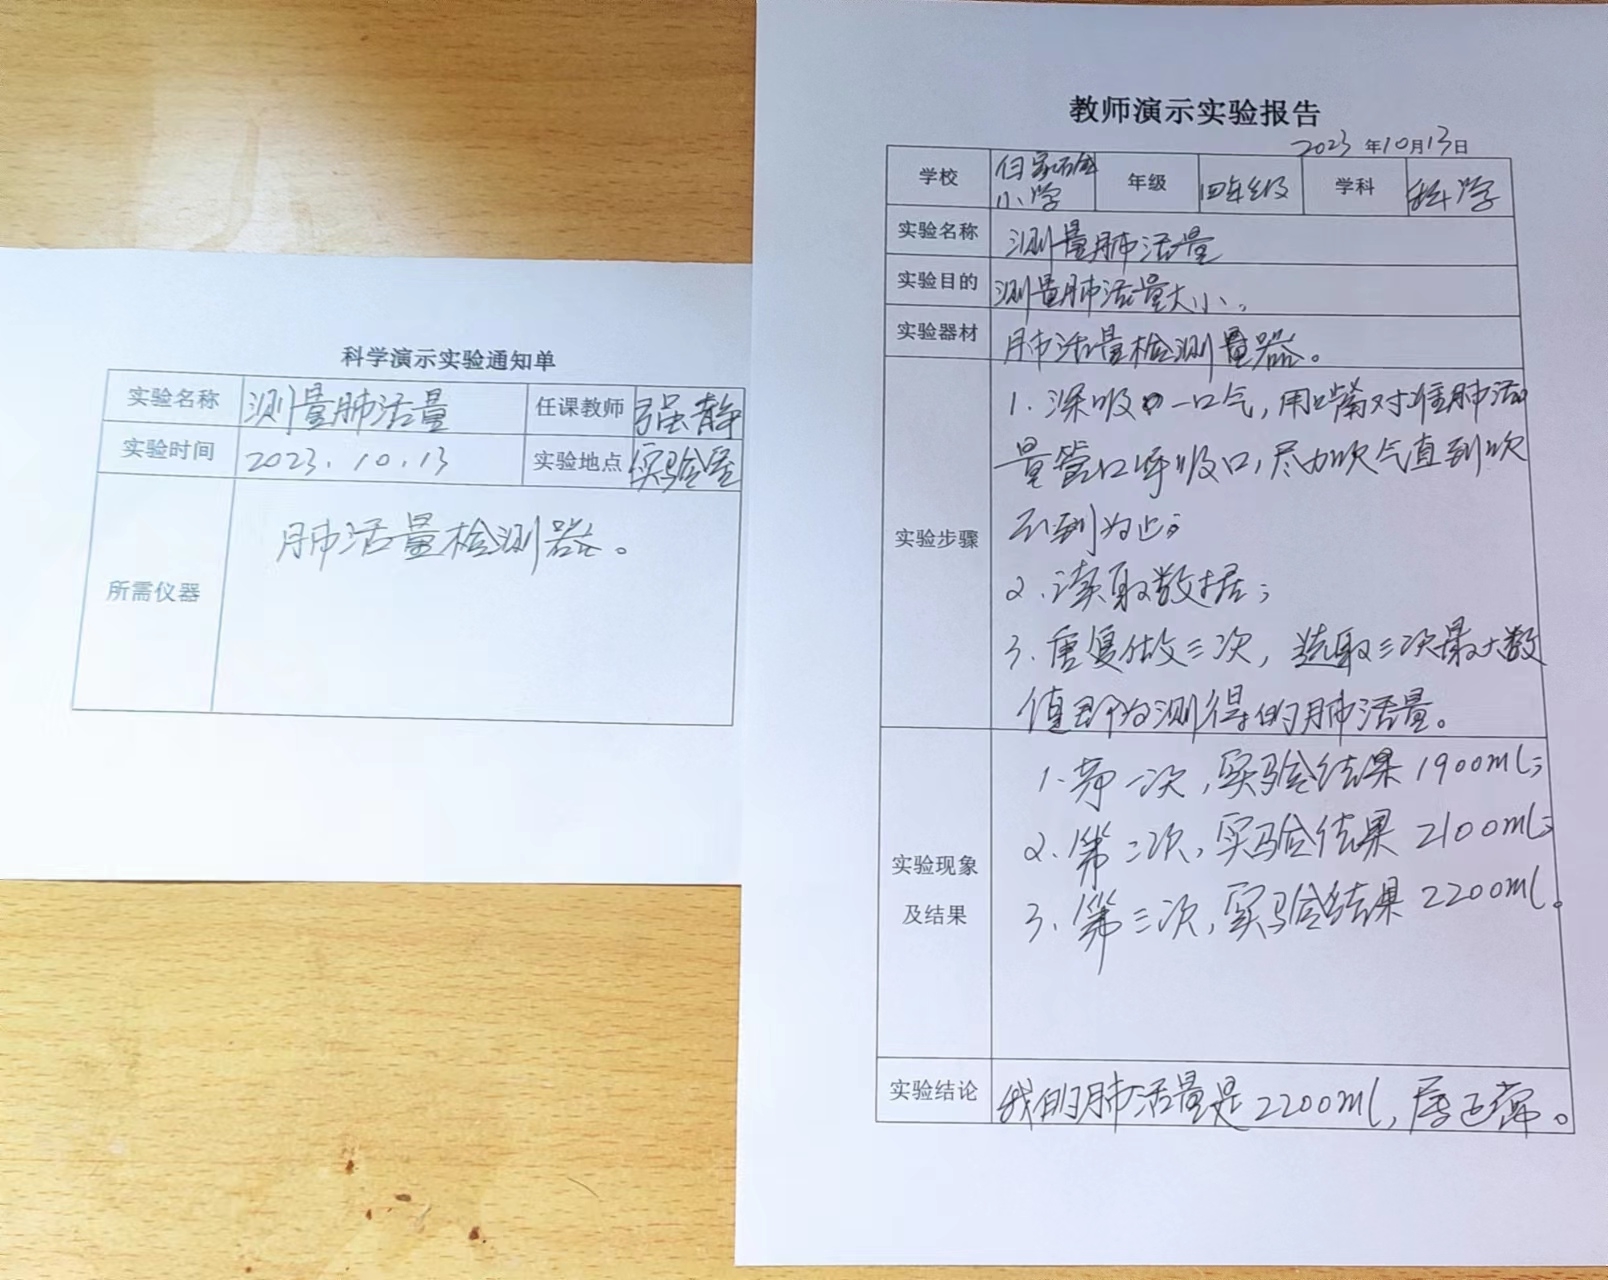 科学演示实验通知单
实验名称 测量肺活量 任课教师 强静
实验时间 2023.10.13 实验地点 实验室
所需仪器 肺活量检测器。
教师演示实验报告
2023年10月13日
学校 小学 年级 四年级 学科 科学
实验名称 测量肺活量
实验目的 测量肺活量大小。
实验器材 肺活量检测量器。
实验步骤
1.深吸一口气,用嘴对准肺活
量管口呼吸口,尽力吹气直到吹
不到为止;
2.读取数据;
3.重复做三次,选取三次最大数
值即为测得的肺活量。
实验现象
及结果
1.第一次,实验结果1900ml;
2.第二次,实验结果2100ml;
3.第三次,实验结果2200ml。
实验结论 我的肺活量是2200ml,居正常。